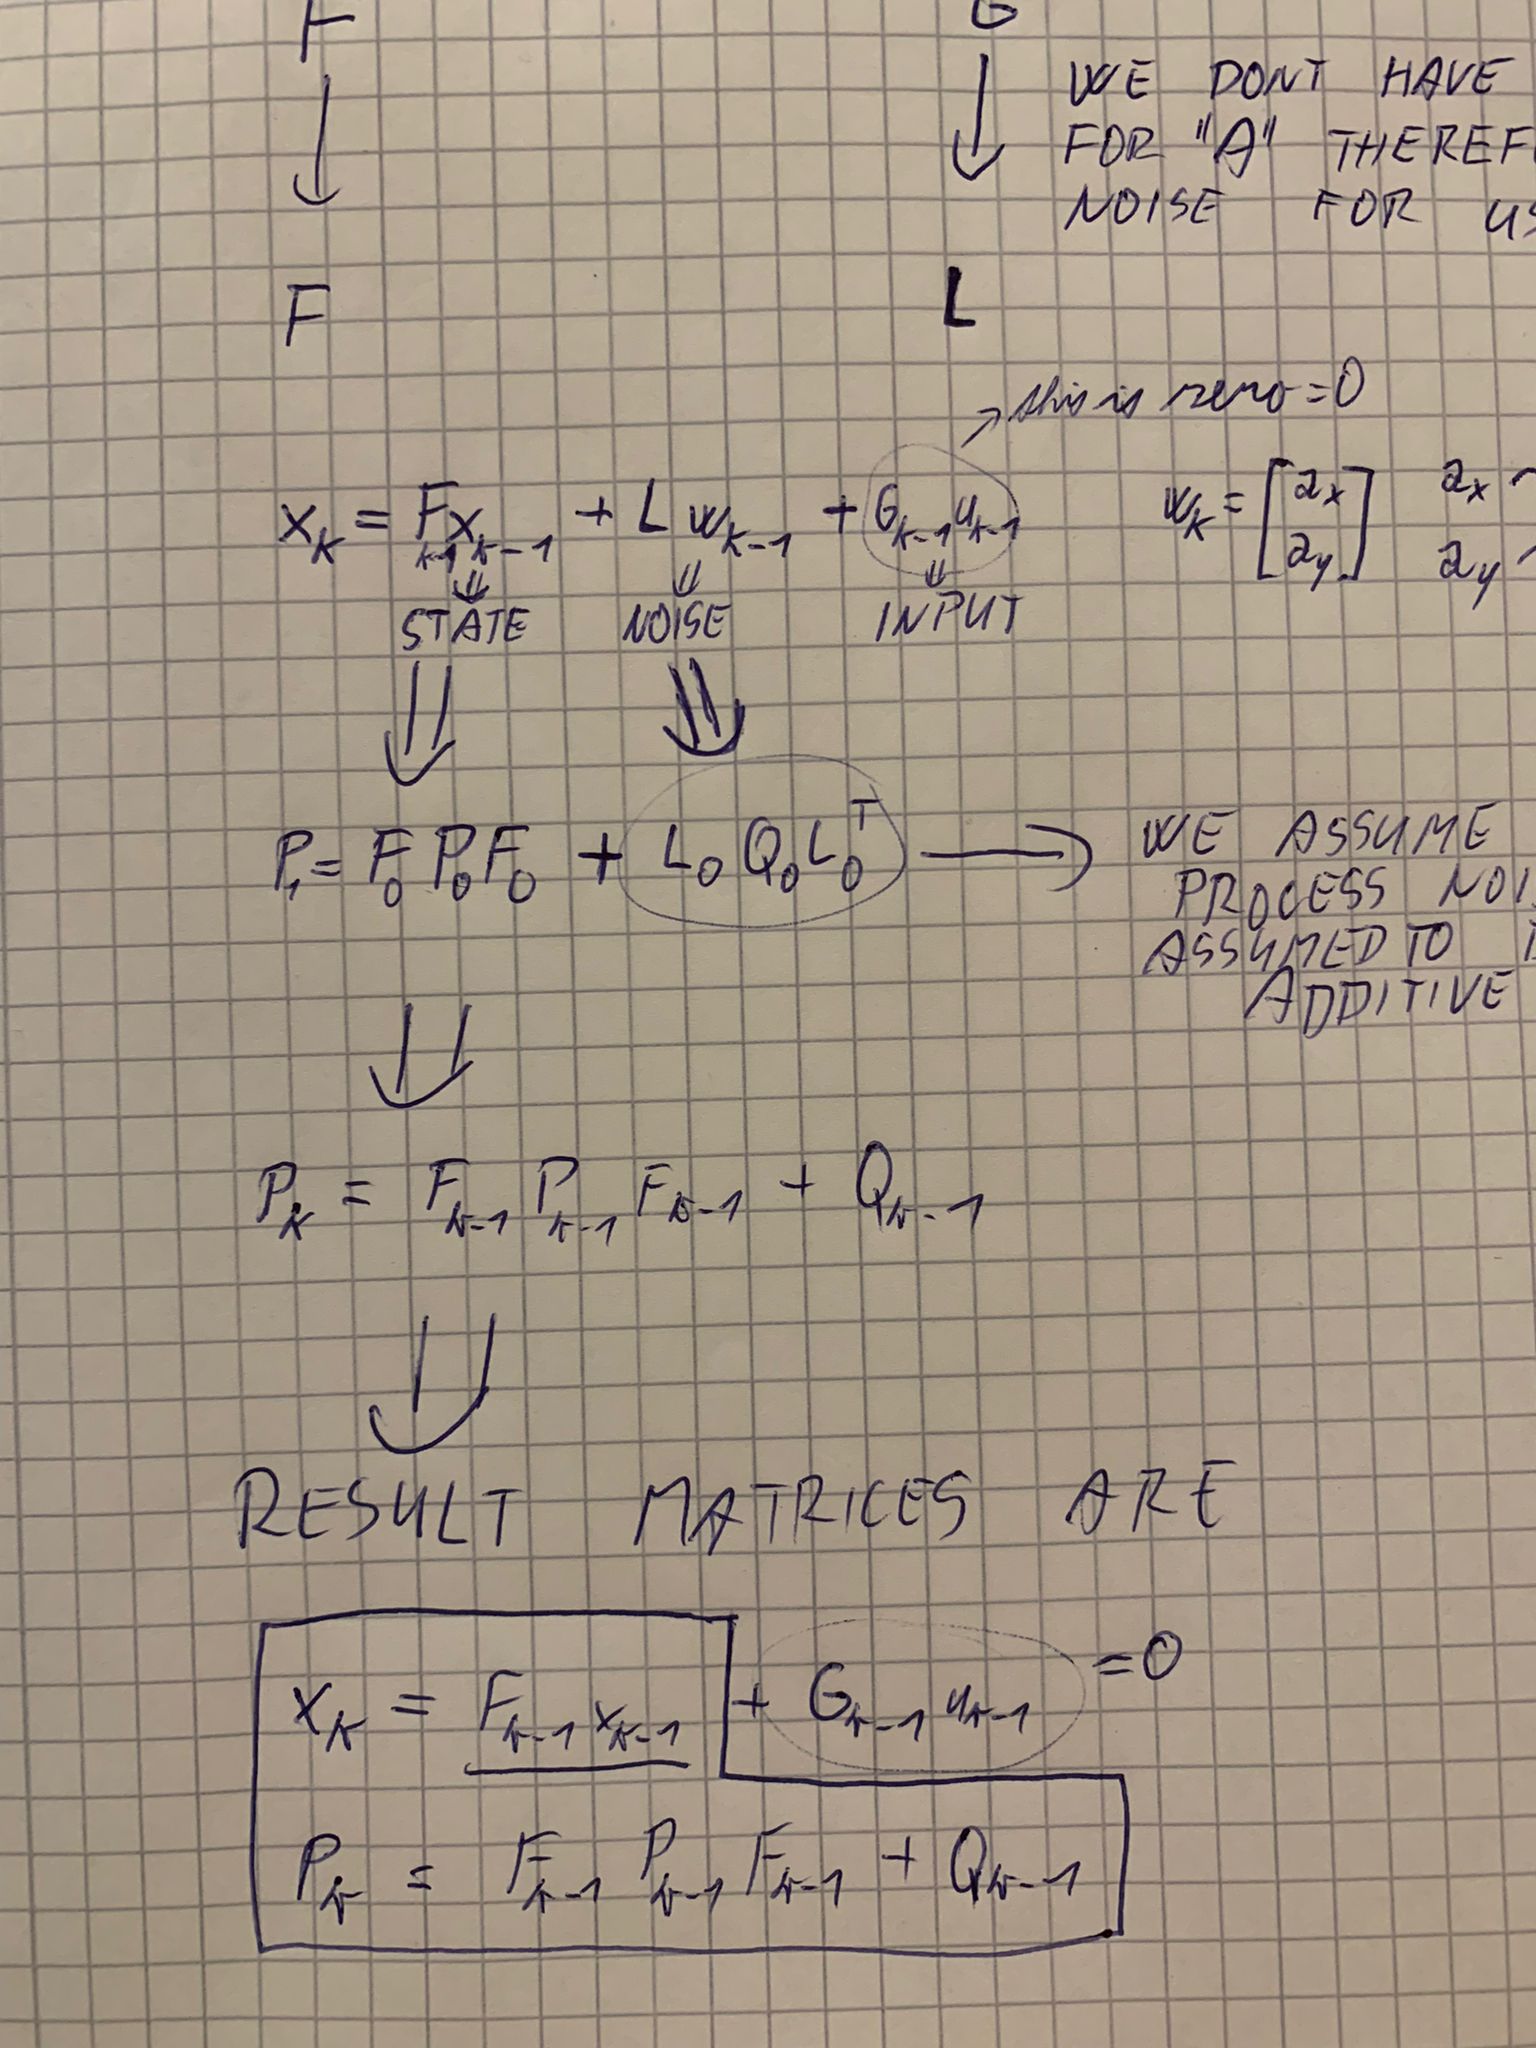 F
G
WE DONT HAVE
FOR "A"
NOISE FOR
F
L
this is zero = 0
x_k = F_{k-1} x_{k-1} + L w_{k-1} + G_{k-1} u_{k-1}
w_k = [a_x a_y] a_x ~
a_y ~
STATE NOISE INPUT
P_1 = F_0 P_0 F_0 + L_0 Q_0 L_0^T → WE ASSUME
PROCESS
ASSUMED TO
ADDITIVE
P_k = F_{k-1} P_{k-1} F_{k-1} + Q_{k-1}
RESULT MATRICES ARE
x_k = F_{k-1} x_{k-1} + G_{k-1} u_{k-1} = 0
P_k = F_{k-1} P_{k-1} F_{k-1} + Q_{k-1}